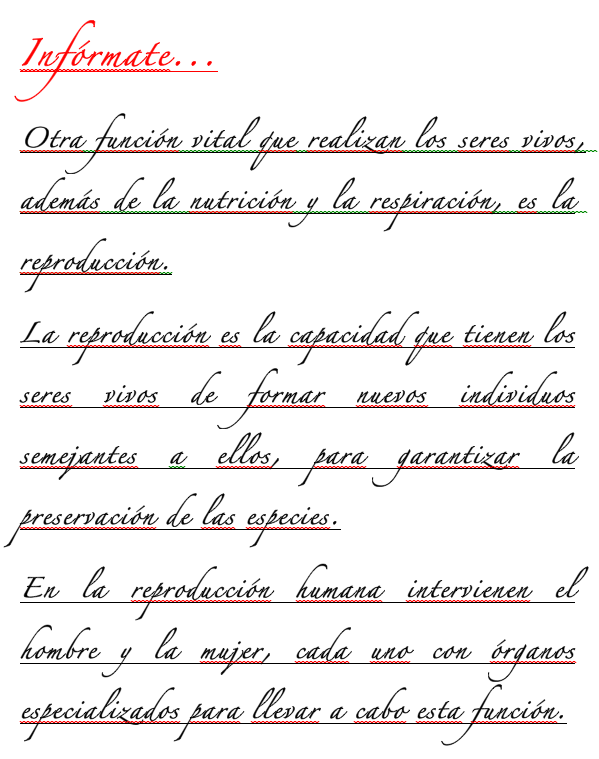 Infórmate...
Otra función vital que realizan los seres vivos,
además de la nutrición y la respiración, es la
reproducción.
La reproducción es la capacidad que tienen los
seres vivos de formar nuevos individuos
semejantes a ellos, para garantizar la
preservación de las especies.
En la reproducción humana intervienen el
hombre y la mujer, cada uno con órganos
especializados para llevar a cabo esta función.